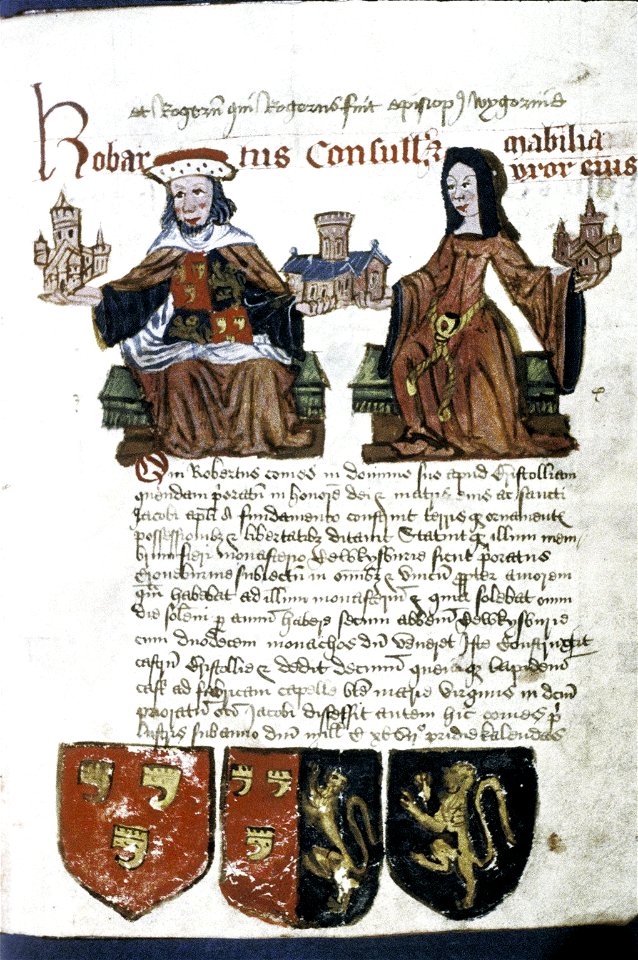 et Rogerū qui Rogerus fuit episcopꝰ Wygornie
Robartus Consull &
mabilia
uxor eius
Qui Robertus comes in dominio suo apud Bristolliam
quendam p̄oratū in honore dei & matris eius ac sancti
Jacobi apłi a fundamento construxit terris & ornamentis
possessionibꝫ & libertatibꝫ ditavit Statuit & illum mem
brum fieri monasterio Tewkysburie sicut p̄oratus
subiectū in omībꝫ & unicū propter amorem
quē habebat ad illum monasteriū & quia solebat omni
die solēni per annum habere secum abbem Tewkysburie
cum duodecem monachos Iste construxit
castrū Bristollie & dedit decimum quēq lapidem
castri ad fabricam capelle bte marie virginis in dcm
prioratū sti Jacobi discessit autem hic comes
sub anno dni pridie kalendas